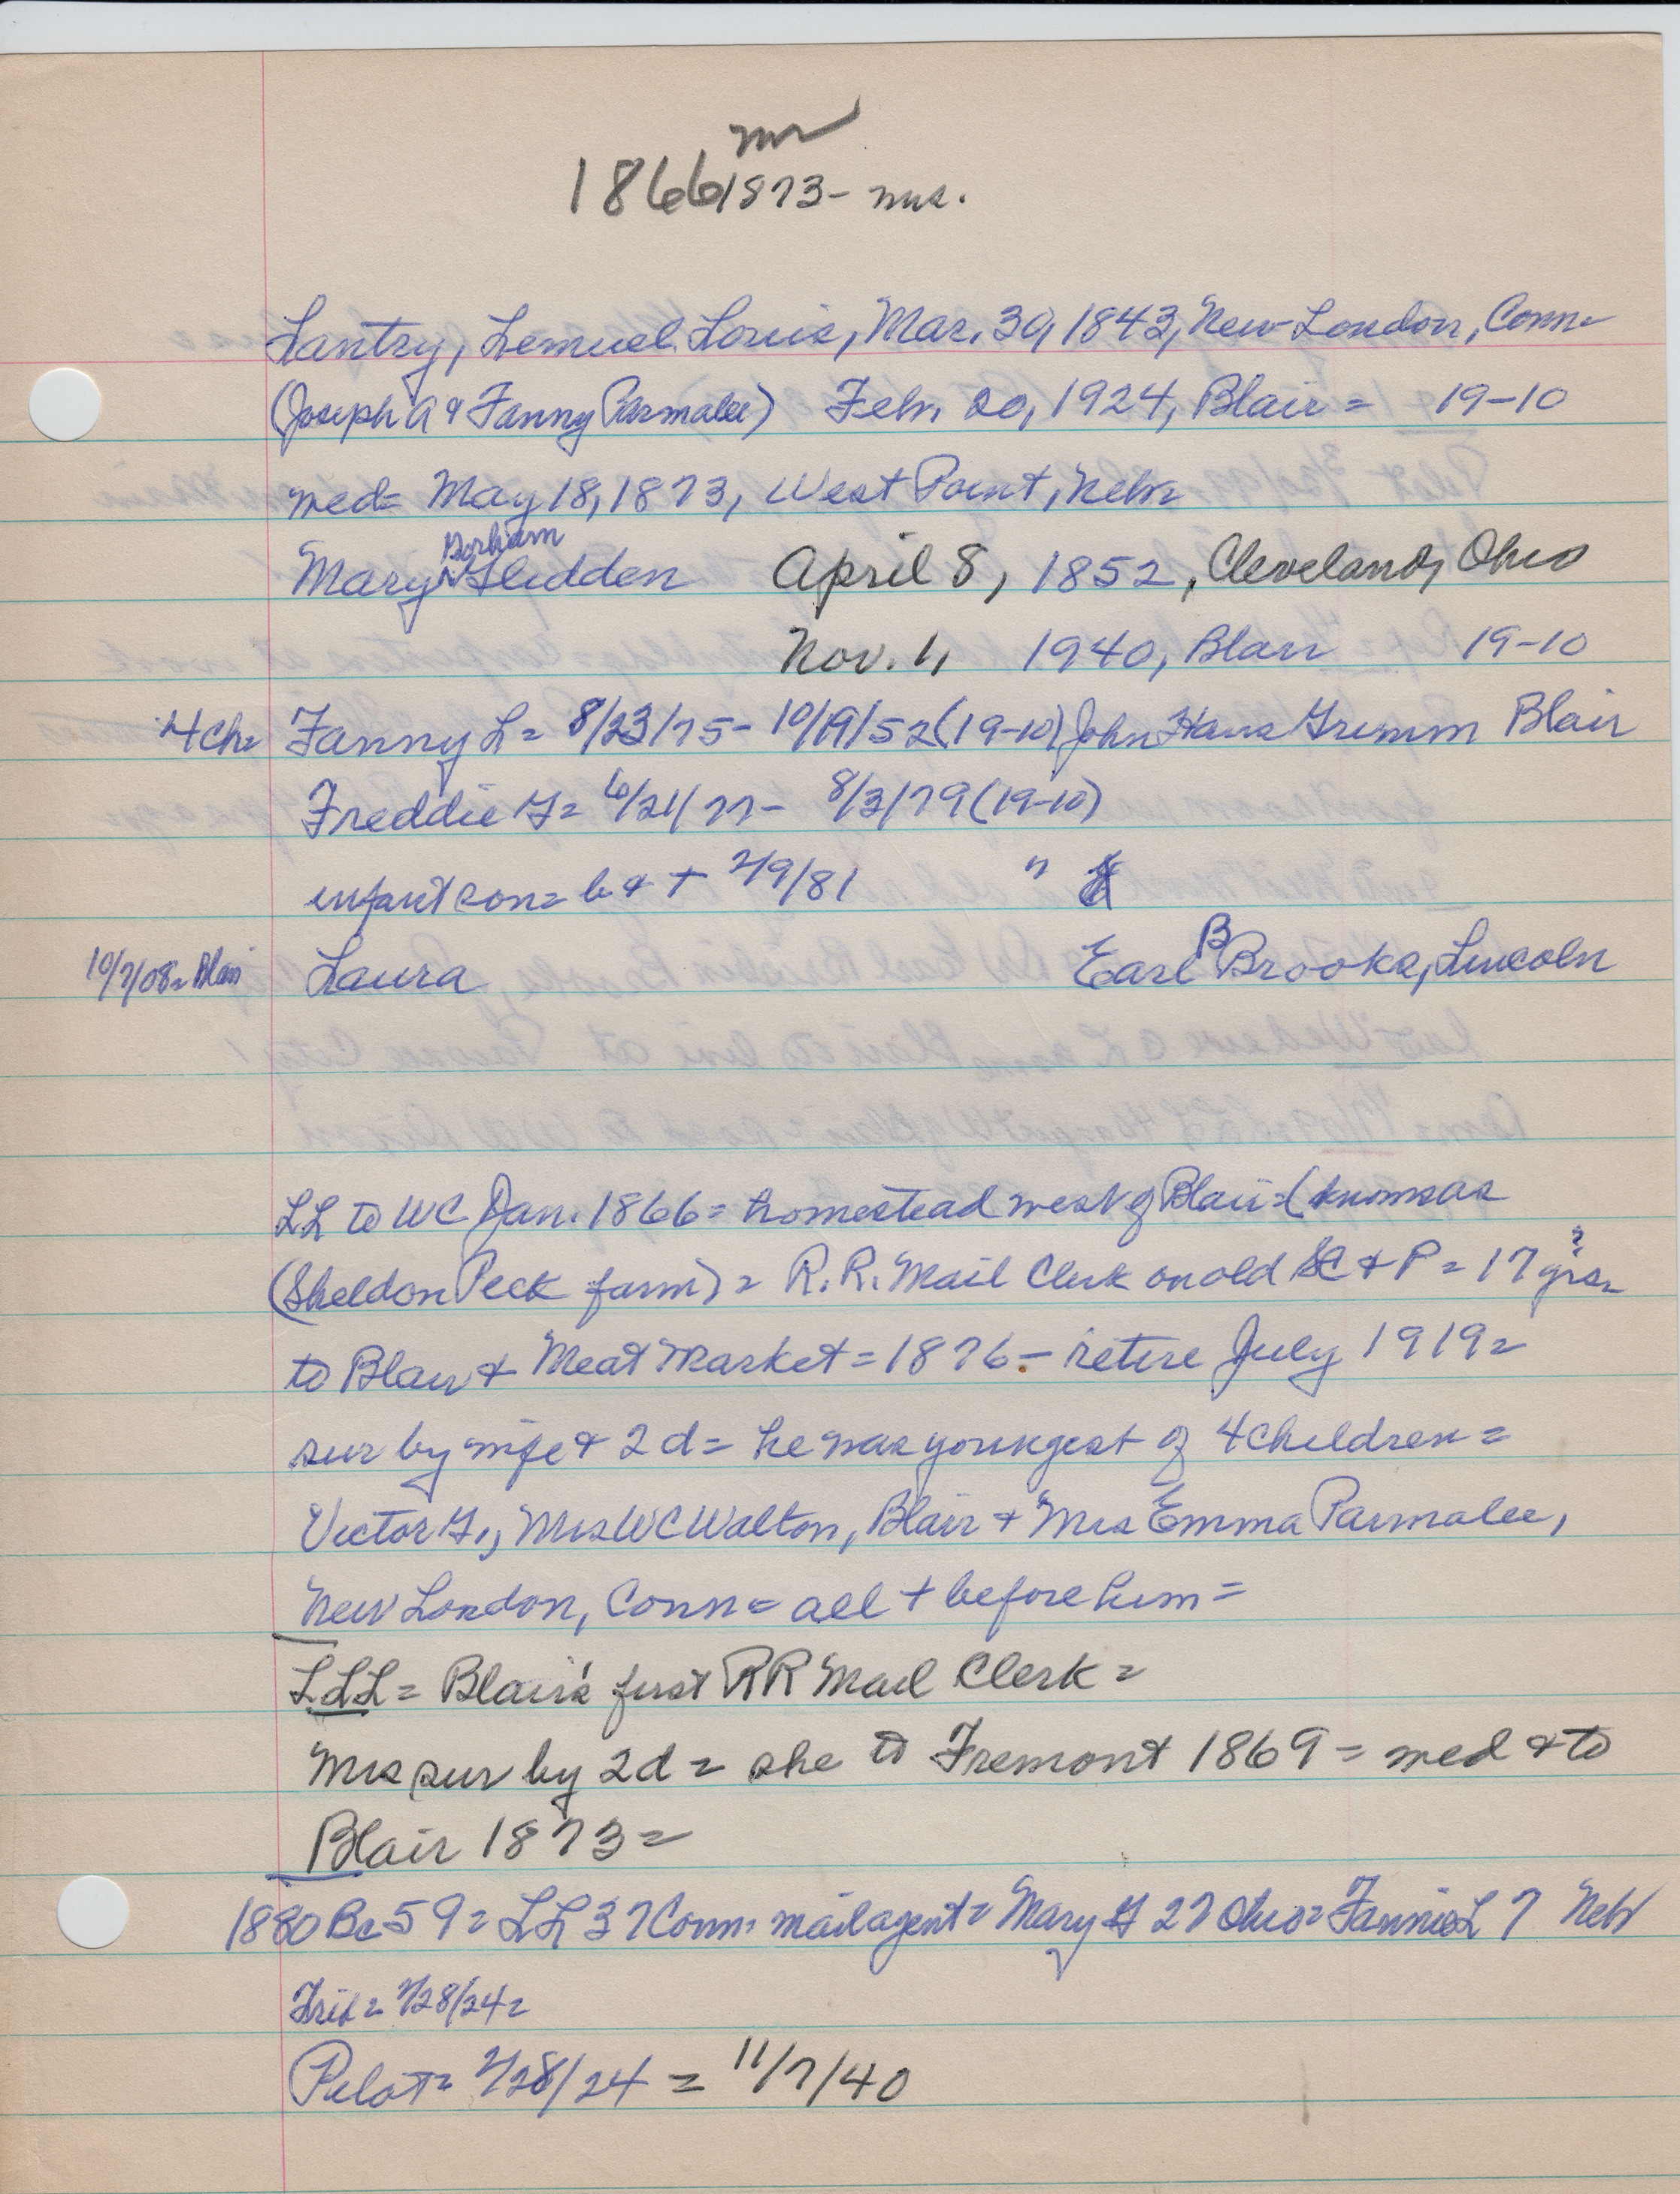 mr
1866 1873- mrs.
Lantry, Lemuel Louis, Mar. 30, 1843, New London, Conn=
(Joseph A & Fanny Parmalee) Feb. 20, 1924, Blair = 19-10
med= May 18, 1873, West Point, Neb=
Gorham
Mary Glidden April 8, 1852, Cleveland, Ohio
Nov. 1, 1940, Blair 19-10
4 ch= Fanny L= 8/23/75- 10/19/52 (19-10) John Hans Grimm Blair
Freddie G= 6/21/77- 8/3/79 (19-10)
infant son= b & + 2/9/81 "
10/7/08= Blair Laura Earl B Brooks, Lincoln
LL to WC Jan. 1866= homestead west of Blair= (known as
(Sheldon Peck farm) = R.R. Mail Clerk on old SC & P = 17 yrs= ?
to Blair & Meat Market = 1876 - retire July 1919=
sur by wife & 2 d= he was youngest of 4 children=
Victor G., Mrs WC Walton, Blair + Mrs Emma Parmalee,
New London, Conn= all + before him=
LLL= Blair's first RR Mail Clerk=
Mrs sur by 2d= she to Fremont 1869= med & to
Blair 1873=
1880 Bc 59= LL 37 Conn= mail agent= Mary G 27 Ohio= Fannie L 7 Neb
Trib= 2/28/24=
Pilot= 2/28/24 = 11/7/40